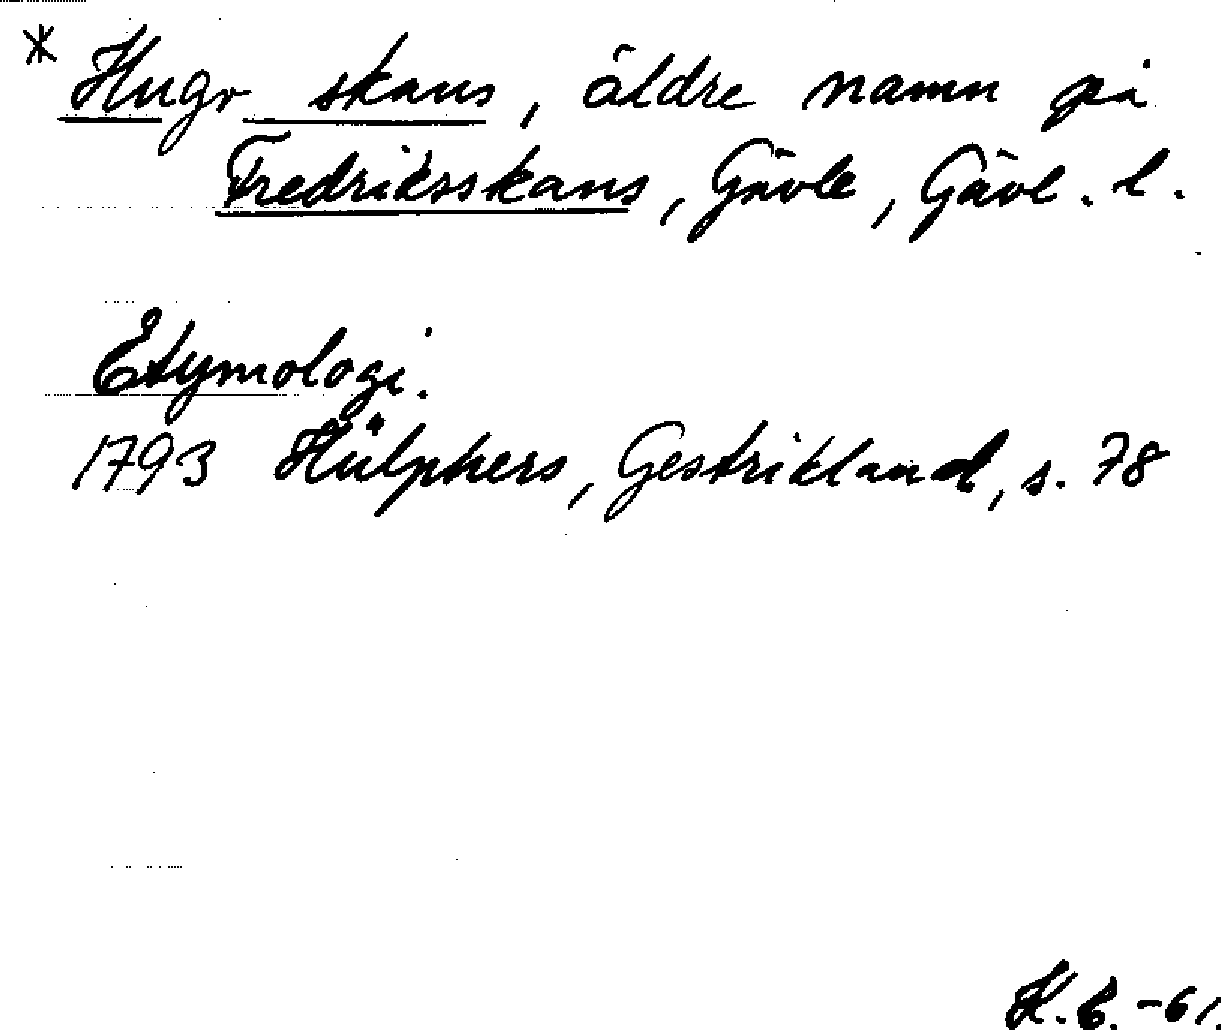 * Hugo skans, äldre namn på
Fredriksskans, Gävle, Gävl. l.
Etymologi.
1793 Hülphers, Gestrikland, s. 78
K.C. -61.